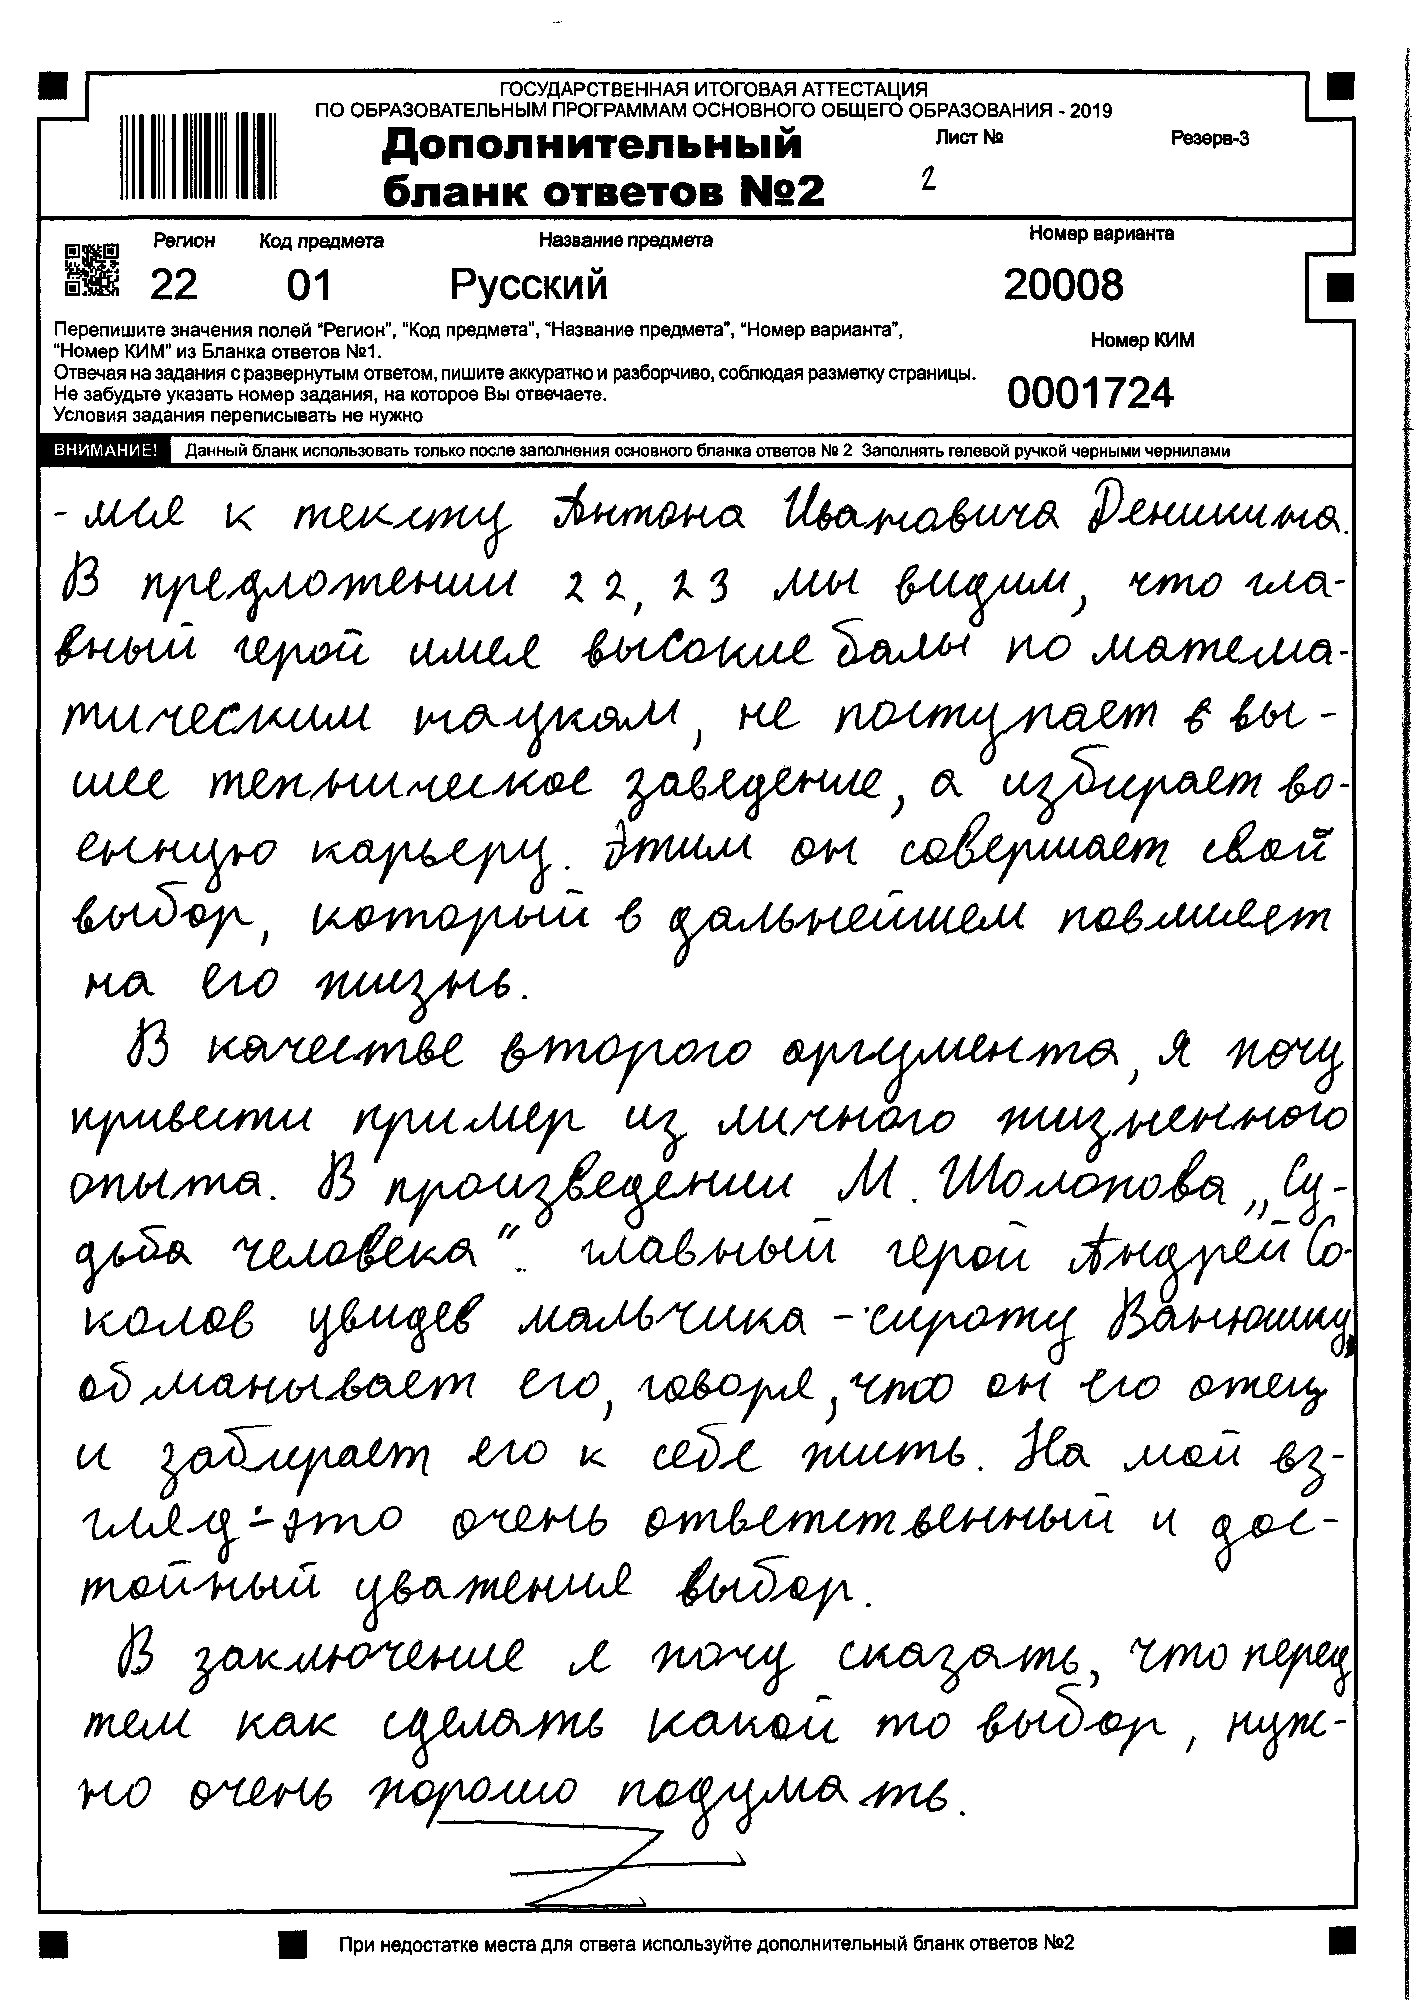 ГОСУДАРСТВЕННАЯ ИТОГОВАЯ АТТЕСТАЦИЯ
ПО ОБРАЗОВАТЕЛЬНЫМ ПРОГРАММАМ ОСНОВНОГО ОБЩЕГО ОБРАЗОВАНИЯ - 2019
Дополнительный Лист № Резерв-3
бланк ответов №2 2
Регион Код предмета Название предмета Номер варианта
22 01 Русский 20008
Перепишите значения полей "Регион", "Код предмета", "Название предмета", "Номер варианта",
"Номер КИМ" из Бланка ответов №1. Номер КИМ
Отвечая на задания с развернутым ответом, пишите аккуратно и разборчиво, соблюдая разметку страницы.
Не забудьте указать номер задания, на которое Вы отвечаете. 0001724
Условия задания переписывать не нужно
ВНИМАНИЕ! Данный бланк использовать только после заполнения основного бланка ответов № 2 Заполнять гелевой ручкой черными чернилами
-мся к тексту Антона Ивановича Деникина.
В предложении 22, 23 мы видим, что гла-
вный герой имея высокие балы по матема-
тическим наукам, не поступает в вы-
шее техническое заведение, а избирает во-
енную карьеру. Этим он совершает свой
выбор, который в дальнейшем повлияет
на его жизнь.
В качестве второго аргумента, я хочу
привести пример из личного жизненного
опыта. В произведении М. Шолохова „Су-
дьба человека“ главный герой Андрей Со-
колов увидев мальчика-сироту Ванюшку,
обманывает его, говоря, что он его отец
и забирает его к себе жить. На мой вз-
гляд - это очень ответственный и дос-
тойный уважения выбор.
В заключение я хочу сказать, что перед
тем как сделать какой то выбор, нуж-
но очень хорошо подумать.
При недостатке места для ответа используйте дополнительный бланк ответов №2